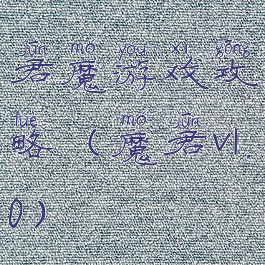 jūn mó yóu xì gōng
君魔游戏攻
lüè mó jūn
略（魔君V1.
0）